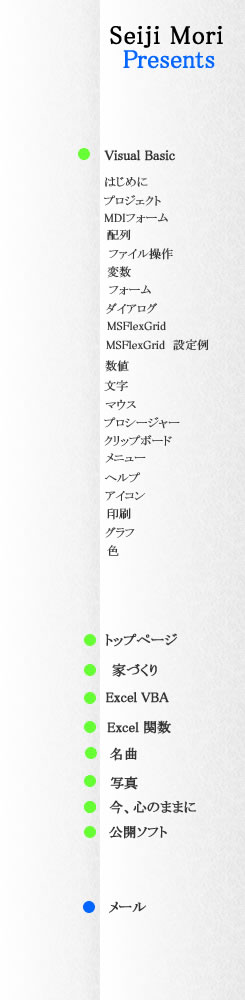 Seiji Mori
Presents
Visual Basic
はじめに
プロジェクト
MDIフォーム
配列
ファイル操作
変数
フォーム
ダイアログ
MSFlexGrid
MSFlexGrid 設定例
数値
文字
マウス
プロシージャー
クリップボード
メニュー
ヘルプ
アイコン
印刷
グラフ
色
トップページ
家づくり
Excel VBA
Excel 関数
名曲
写真
今、心のままに
公開ソフト
メール